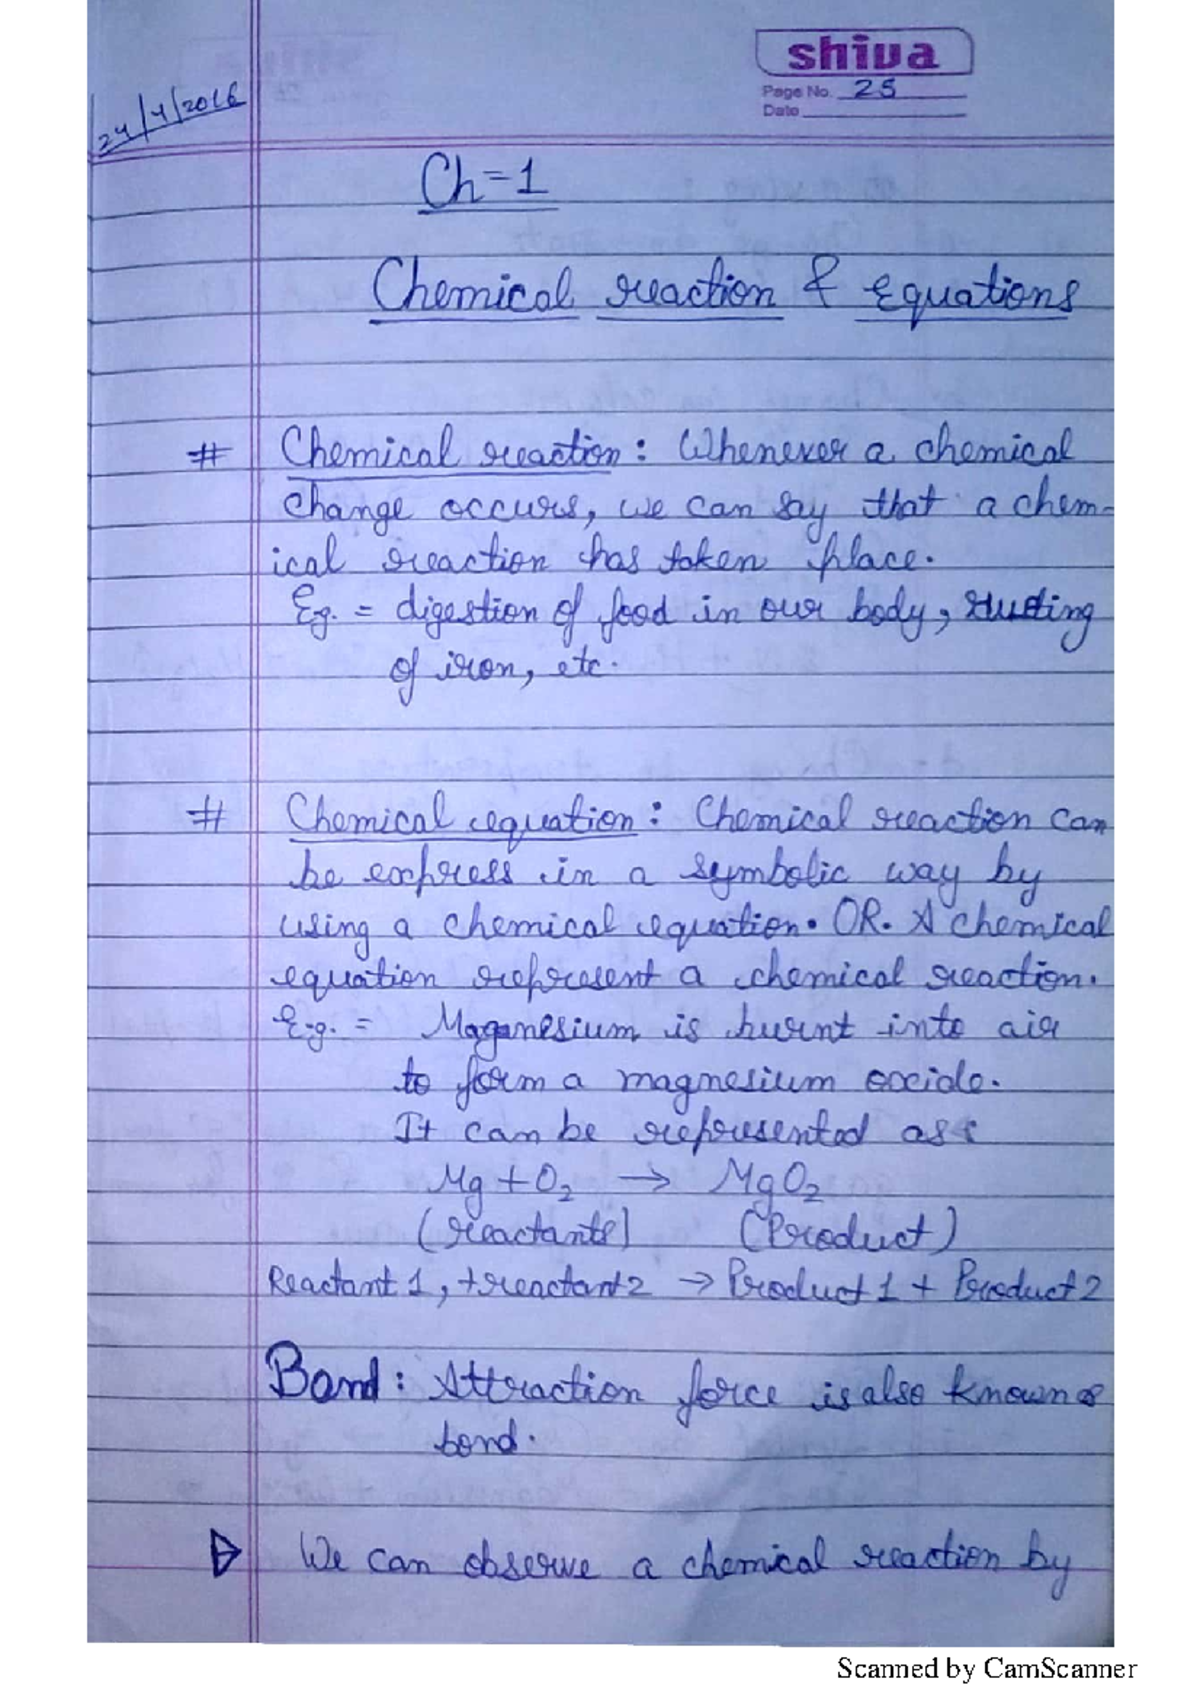 shiva
Page No. 25
Date
24/4/2016
Ch=1
Chemical reaction & Equations
# Chemical reaction: Whenever a chemical
change occurs, we can say that a chem-
ical reaction has taken place.
Eg. = digestion of food in our body, rusting
of iron, etc.
# Chemical equation: Chemical reaction can
be express in a symbolic way by
using a chemical equation. OR. A chemical
equation represent a chemical reaction.
Eg. = Maganesium is burnt into air
to form a magnesium oxide.
It can be represented as:
Mg + O₂ → MgO₂
(reactants) (Product)
Reactant 1, + reactant 2 → Product 1 + Product 2
Bond: Attraction force is also known as
bond.
We can observe a chemical reaction by
Scanned by CamScanner